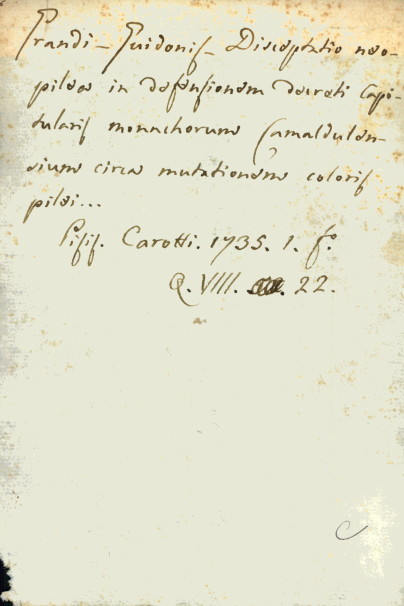 Grandi - Guidonis - Disceptatio neo-
pilea in defensionem decreti Capi-
tularis monachorum Camaldulen-
sium circa mutationem coloris
pilei...
Pisis. Carotti. 1735. 1. fo.
Q. VIII. 22.